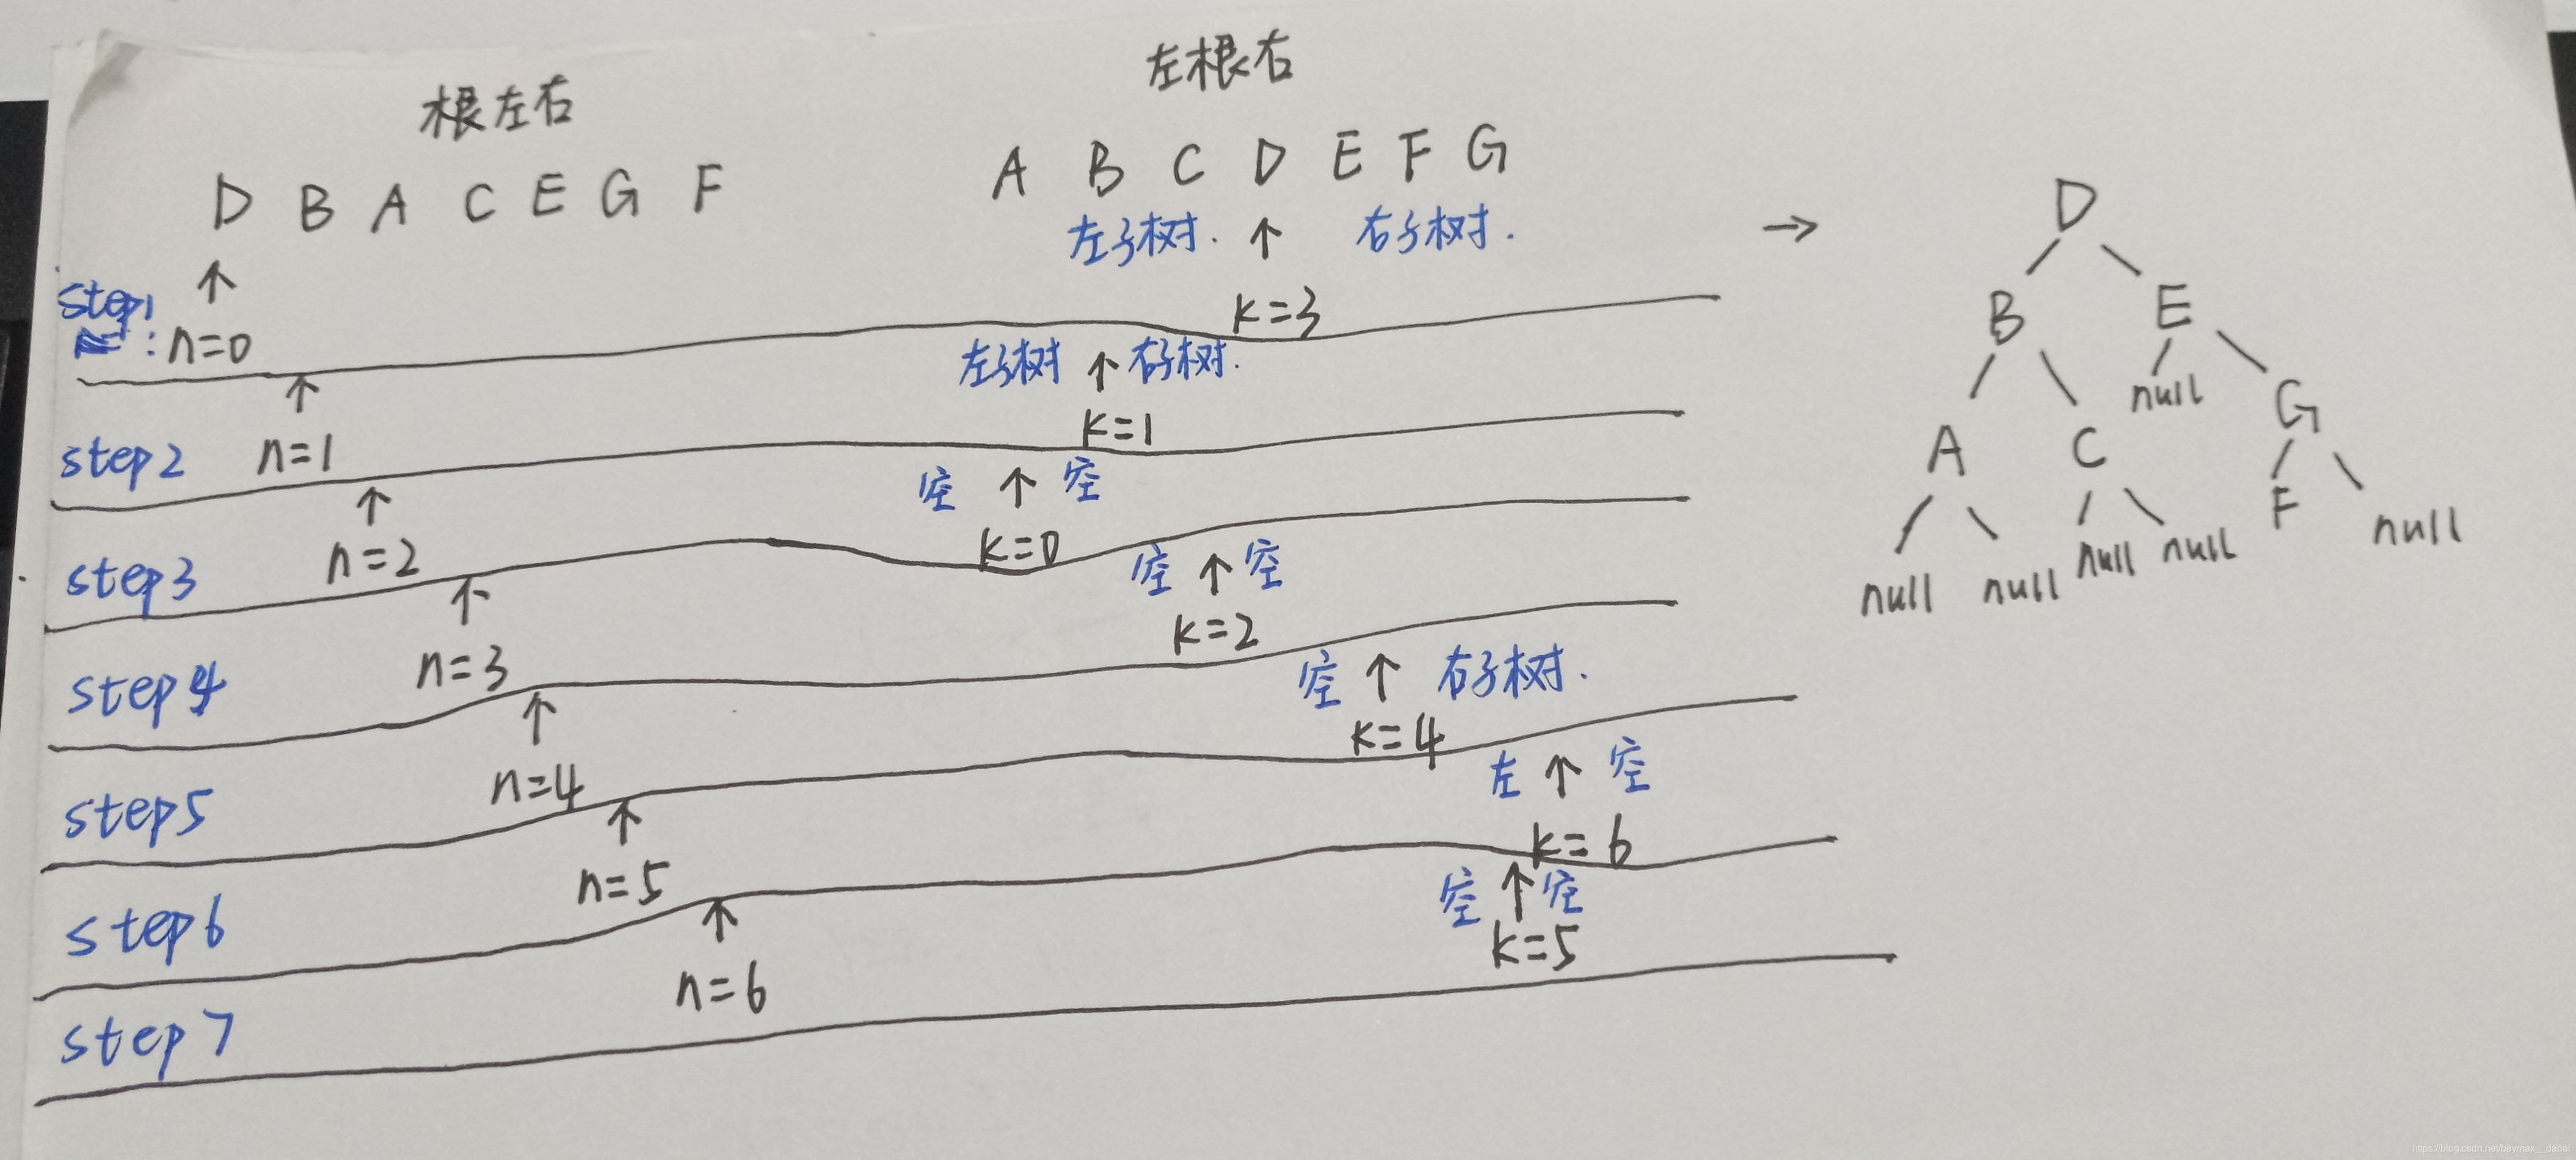 根左右
左根右
D B A C E G F
A B C D E F G
左子树. ↑ 右子树.
→
step1
: n=0
↑
k=3
左子树 ↑ 右子树.
k=1
step2
n=1
↑
空 ↑ 空
k=0
step3
n=2
↑
空 ↑ 空
k=2
step4
n=3
↑
空 ↑ 右子树.
k=4
step5
n=4
↑
左 ↑ 空
k=6
step6
n=5
↑
空 ↑ 空
k=5
step7
n=6
↑
D
B E
A C null G
null null null null F null
https://blog.csdn.net/baymax__dabai